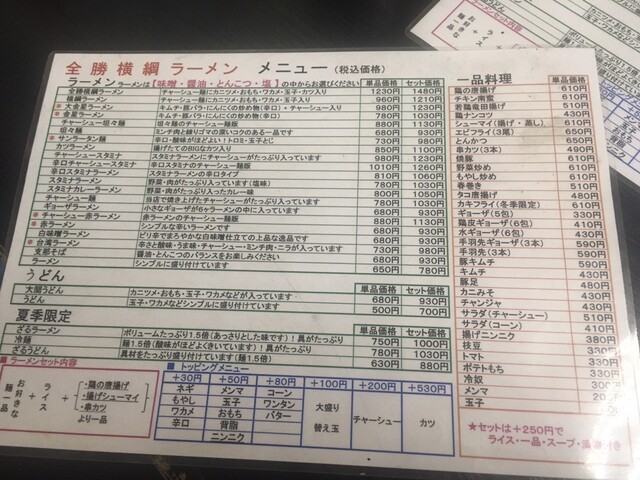 全勝横綱ラーメン メニュー (税込価格)
ラーメンは【味噌・醤油・とんこつ・塩】の中からお選びください 単品価格 セット価格
全勝横綱ラーメン チャーシュー麺にカニツメ・おもち・ワカメ・玉子・カツ入り 1230円 1480円
横綱ラーメン チャーシュー麺にカニツメ・おもち・ワカメ・玉子入り 960円 1210円
大金星ラーメン キムチ・豚バラ・にんにくの炒め物(辛口)・チャーシュー入り 980円 1230円
金星ラーメン キムチ・豚バラ・にんにくの炒め物(辛口) 780円 1030円
チャーシュー坦々麺 坦々麺のチャーシュー麺版 880円 1130円
坦々麺 ミンチ肉と練りゴマの深いコクのある一品です 680円 930円
サンラータン麺 辛口・酸味がほどよい!トロミ・玉子とじ 730円 980円
カツラーメン 揚げたてのBIGなカツ入り 880円 1100円
チャーシュースタミナ スタミナラーメンにチャーシューがたっぷり入っています 980円 1230円
辛口チャーシュースタミナ 辛口スタミナのチャーシューラーメン版 1010円 1260円
辛口スタミナラーメン スタミナラーメンの辛口タイプ 810円 1060円
スタミナラーメン 野菜・肉がたっぷり入っています(塩味) 780円 1030円
スタミナカレーラーメン 野菜・肉がたっぷり入ったカレー味 800円 1050円
チャーシュー麺 当店で焼き上げたチャーシューがたっぷり入っています 780円 1030円
ギョーザラーメン 小さなギョーザが6ヶラーメンの中に入っています
チャーシュー赤ラーメン 赤ラーメンのチャーシュー麺版 880円 1130円
赤ラーメン シンプルな辛いラーメンです 680円 930円
白味噌ラーメン ピリ辛でまろやかな白味噌仕立ての上品な逸品です 680円 930円
台湾ラーメン 辛さと酸味・うま味・チャーシュー・ミンチ肉・ニラが入っています 730円 980円
支那そば 醤油・とんこつのバランスをお楽しみください 680円
ラーメン シンプルに盛り付けています 650円 780円
うどん 単品価格 セット価格
大関うどん カニツメ・おもち・玉子・ワカメなどが入っています 680円 930円
うどん 玉子・ワカメなどシンプルに盛り付けています 500円 700円
夏季限定 単品価格 セット価格
ざるラーメン ボリュームたっぷり1.5倍(あっさりとした味です)!具がたっぷり 750円 1000円
冷麺 麺1.5倍(酸味がほどよくきいています)!具がたっぷり 780円 1030円
ざるうどん 具材をたっぷり盛り付けています(麺1.5倍) 630円 880円
■ラーメンセット内容
お好きな麺一品 + ライス + ・鶏の唐揚げ ・揚げシューマイ ・串カツ より一品
■トッピングメニュー
+30円 +50円 +80円 +100円 +200円 +530円
ネギ メンマ コーン 大盛り チャーシュー カツ
もやし 玉子 ワンタン 替え玉
ワカメ おもち バター
辛口 背脂
ニンニク
一品料理 単品価格
鶏の唐揚げ 610円
チキン南蛮 610円
若鶏竜田揚げ 510円
鶏ナンコツ 430円
シューマイ(揚げ・蒸し) 610円
エビフライ(3尾) 650円
とんかつ 650円
串カツ(3本) 490円
焼豚 610円
野菜炒め 610円
もやし炒め 610円
春巻き 510円
タコ唐揚げ 480円
カキフライ(冬季限定) 610円
ギョーザ(5包) 330円
鶏皮ギョーザ(6包) 410円
水ギョーザ(6包) 430円
手羽先ギョーザ(3本) 590円
手羽先(3本) 530円
豚キムチ 590円
キムチ
豚足
カニみそ 430円
チャンジャ 430円
サラダ(チャーシュー) 510円
サラダ(コーン) 410円
揚げニンニク
枝豆
トマト
ポテトもち 330円
冷奴
メンマ
玉子
★セットは+250円で
ライス・一品・スープ・漬物付き
ラーメンセット内容